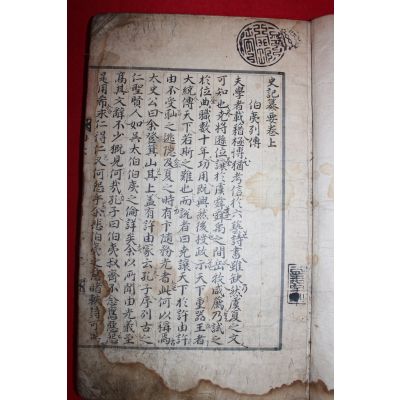 史記纂要卷上
伯夷列傳
夫學者載籍極博猶考信於六藝詩書雖缺然虞夏之文
可知也堯將遜位讓於虞舜舜禹之間岳牧咸薦乃試之
於位典職數十年功用旣興然後授政示天下重器王者
大統傳天下若斯之難也而說者曰堯讓天下於許由許
由不受恥之逃隱及夏之時有卞隨務光者此何以稱焉
太史公曰余登箕山其上盖有許由冢云孔子序列古之
仁聖賢人如吳太伯伯夷之倫詳矣余以所聞由光義至
高其文辭不少槪見何哉孔子曰伯夷叔齊不念舊惡怨
是用希求仁得仁又何怨乎余悲伯夷之意睹軼詩可